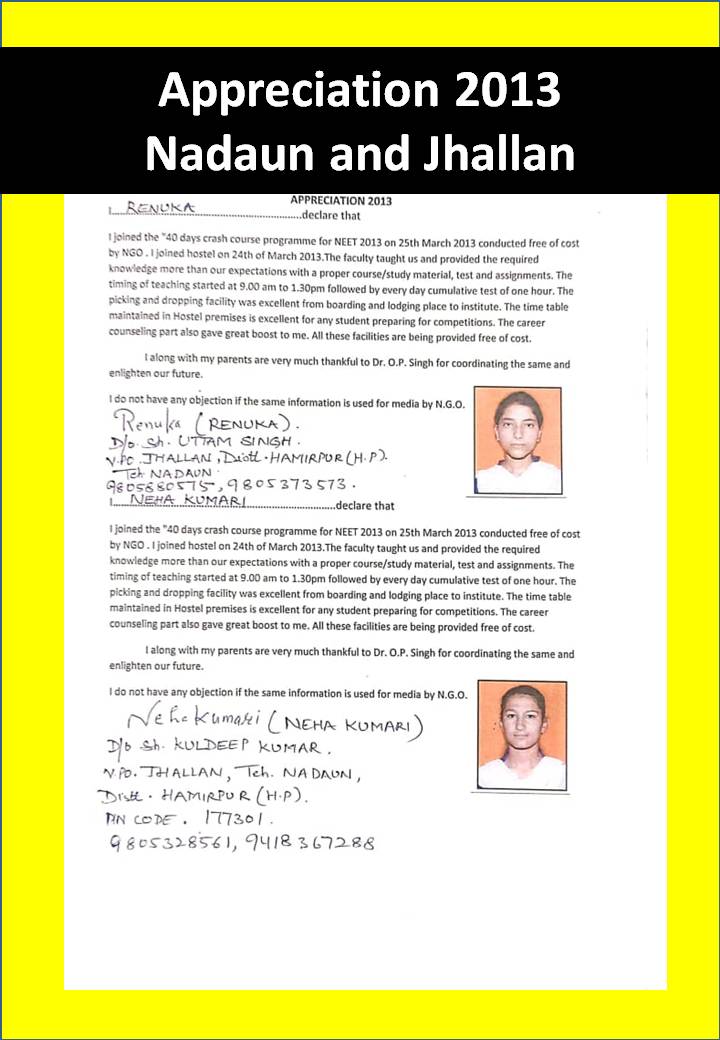 Appreciation 2013
Nadaun and Jhallan
APPRECIATION 2013
I....RENUKA..............................declare that
I joined the "40 days crash course programme for NEET 2013 on 25th March 2013 conducted free of cost
by NGO . I joined hostel on 24th of March 2013.The faculty taught us and provided the required
knowledge more than our expectations with a proper course/study material, test and assignments. The
timing of teaching started at 9.00 am to 1.30pm followed by every day cumulative test of one hour. The
picking and dropping facility was excellent from boarding and lodging place to institute. The time table
maintained in Hostel premises is excellent for any student preparing for competitions. The career
counseling part also gave great boost to me. All these facilities are being provided free of cost.
I along with my parents are very much thankful to Dr. O.P. Singh for coordinating the same and
enlighten our future.
I do not have any objection if the same information is used for media by N.G.O.
Renuka (RENUKA).
D/o Sh. UTTAM SINGH.
V.PO. JHALLAN, Distt. HAMIRPUR (H.P).
Teh NADAUN.
9805680575, 9805373573.
I....NEHA KUMARI..............................declare that
I joined the "40 days crash course programme for NEET 2013 on 25th March 2013 conducted free of cost
by NGO . I joined hostel on 24th of March 2013.The faculty taught us and provided the required
knowledge more than our expectations with a proper course/study material, test and assignments. The
timing of teaching started at 9.00 am to 1.30pm followed by every day cumulative test of one hour. The
picking and dropping facility was excellent from boarding and lodging place to institute. The time table
maintained in Hostel premises is excellent for any student preparing for competitions. The career
counseling part also gave great boost to me. All these facilities are being provided free of cost.
I along with my parents are very much thankful to Dr. O.P. Singh for coordinating the same and
enlighten our future.
I do not have any objection if the same information is used for media by N.G.O.
Neha Kumari (NEHA KUMARI)
D/o Sh. KULDEEP KUMAR.
V.PO. JHALLAN, Teh. NADAUN,
Distt. HAMIRPUR (H.P).
PIN CODE. 177301.
9805328561, 9418367288